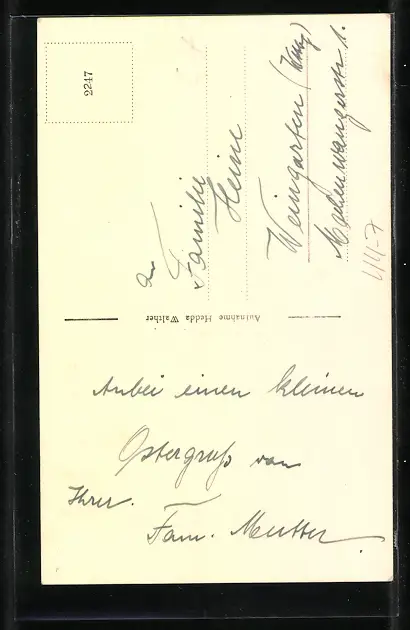 2247
An
Familie
Heine
Weingarten (Wttg)
Mochenwangerstr. 1.
44-7
Aufnahme Hedda Walther
Anbei einen kleinen
Ostergruß von
Ihrer.
Fam. Mutter.